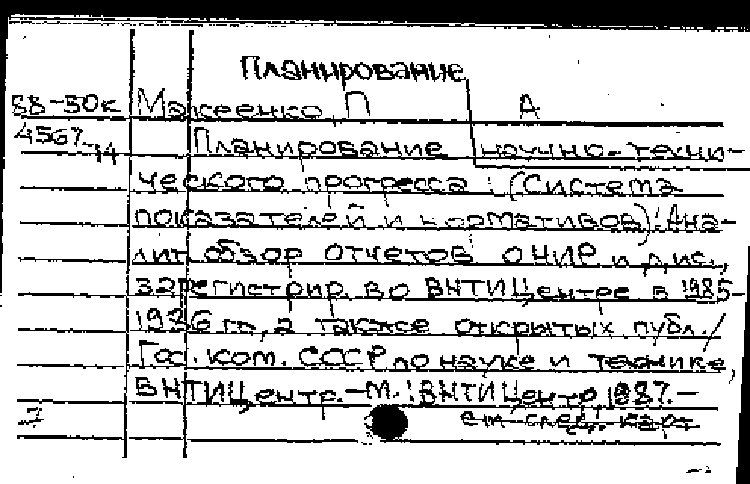 Планирование
88-30к Макеенко, П А
4567-14 Планирование научно-техни-
ческого прогресса: (Система
показателей и нормативов): Ана-
лит. обзор отчетов о НИР и дис.,
зарегистрир. во ВНТИЦентре в 1985-
1986 гг., а также открытых публ./
Гос. ком. СССР по науке и технике,
ВНТИЦентр.-М.: ВНТИЦентр, 1987.-
см след. карт